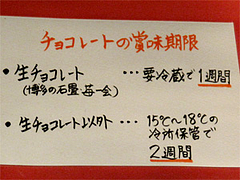 チョコレートの賞味期限
• 生チョコレート …要冷蔵で1週間
(博多の石畳・苺一会)
• 生チョコレート以外 … 15℃~18℃の
冷所保管で
2週間